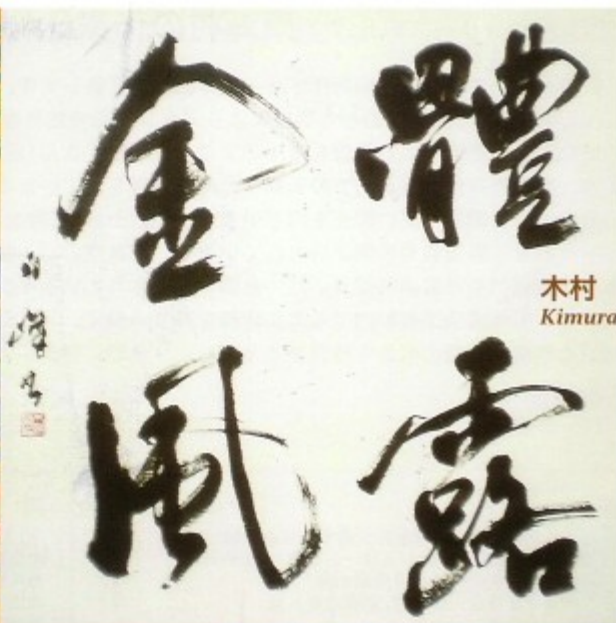 體露
金風
木村
Kimura